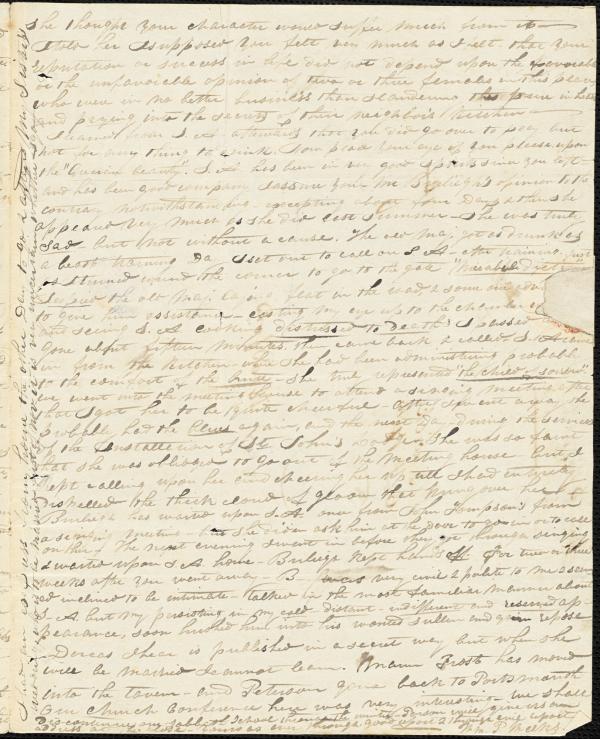 she thought your character would suffer much from it
I told her I supposed you felt very much as I felt that your
reputation or success in life did not depend upon the favorable
or the unfavorable opinion of two or three females in this place
who were in no better business than slandering the pure in heart
and prying into the secrets of their neighbor's kitchen
I learned from S. A. afterwards that you did go over to pray but
not for any thing to drink. You place your eye if you please upon
the "Queen beauty". S. A. has been in very good spirits since you left
and has been good company, Mr Burleigh's opinion to the
contrary notwithstanding - excepting about four days & then she
appeared very much as she did last summer - She was truly
sad - but not without a cause. The old Maj. got as drunk as
a beast training day I set out to call on S A after training, just
as I turned round the corner to go to the gate
I espied the old Maj. laying flat in the road & some one going
to give him assistance - casting my eye up to the chamber
and seeing S. A looking distressed to Death I passed
gone about fifteen minutes then came back & called S. A came
in from the kitchen where she had been administering probably
to the comfort of the brute - She truly represented "the child of sorrow"
we went into the meeting house to attend a singing meeting after
that I got her to be quite cheerful - after I went away she
probably had the blues again, and the next day during the services
of the Installation of St John's Lodge, she was so faint
that she was obliged to go out of the meeting house but I
kept calling upon her and cheering her up till I had entirely
dispelled the thick cloud of gloom that hung over her
Burleigh has waited upon S. A once from from
a singing meeting - but she didn't ask him at the door to go in or to call
on her. The next evening I went in before they got through singing
& waited upon S. A home - Burleigh kept himself off for two or three
weeks after you went away - B. was very civil & polite to me & seem
ed inclined to be intimate - talked in the most familiar manner about
S. A. but my persisting in my cold - distant - indifferent and reserved ap-
pearance, soon hushed him into his wonted sullen and grim repose
- Dorcas I hear is published in a secret way but when she
will be married I cannot learn. Mann Frost has moved
into the tavern - and Peterson gone back to Portsmouth
Our Church Conference here was very interesting we shall
discontinue our Sabbath School through the winter - Parson will give us an